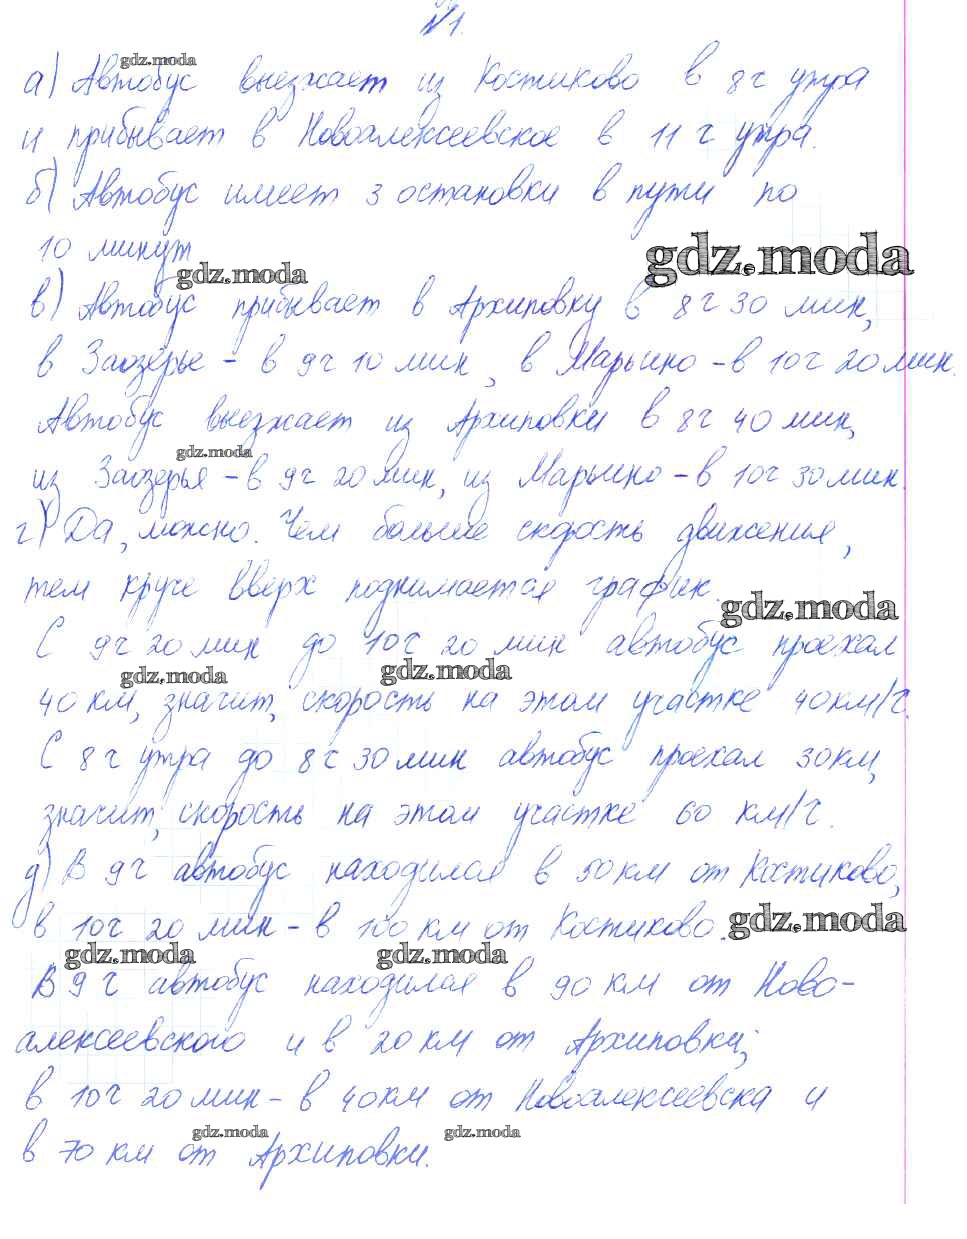 №1.
gdz.moda
а) Автобус выезжает из Костиково в 8 ч утра
и прибывает в Новоалексеевское в 11 ч утра.
б) Автобус имеет 3 остановки в пути по
10 минут
gdz.moda
gdz.moda
в) Автобус прибывает в Архиповку в 8 ч 30 мин,
в Заозёрье - в 9 ч 10 мин, в Марьино - в 10 ч 20 мин.
Автобус выезжает из Архиповки в 8 ч 40 мин,
gdz.moda
из Заозерья - в 9 ч 20 мин, из Марьино - в 10 ч 30 мин.
г) Да, можно. Чем больше скорость движения,
тем круче вверх поднимается график.
gdz.moda
С 9 ч 20 мин до 10 ч 20 мин автобус проехал
gdz.moda gdz.moda
40 км, значит, скорость на этом участке 40 км/ч.
С 8 ч утра до 8 ч 30 мин автобус проехал 30 км,
значит, скорость на этом участке 60 км/ч.
д) В 9 ч автобус находился в 50 км от Костиково,
в 10 ч 20 мин - в 100 км от Костиково.
gdz.moda
gdz.moda gdz.moda
В 9 ч автобус находился в 90 км от Ново-
алексеевского и в 20 км от Архиповки;
в 10 ч 20 мин - в 40 км от Новоалексеевска и
gdz.moda gdz.moda
в 70 км от Архиповки.